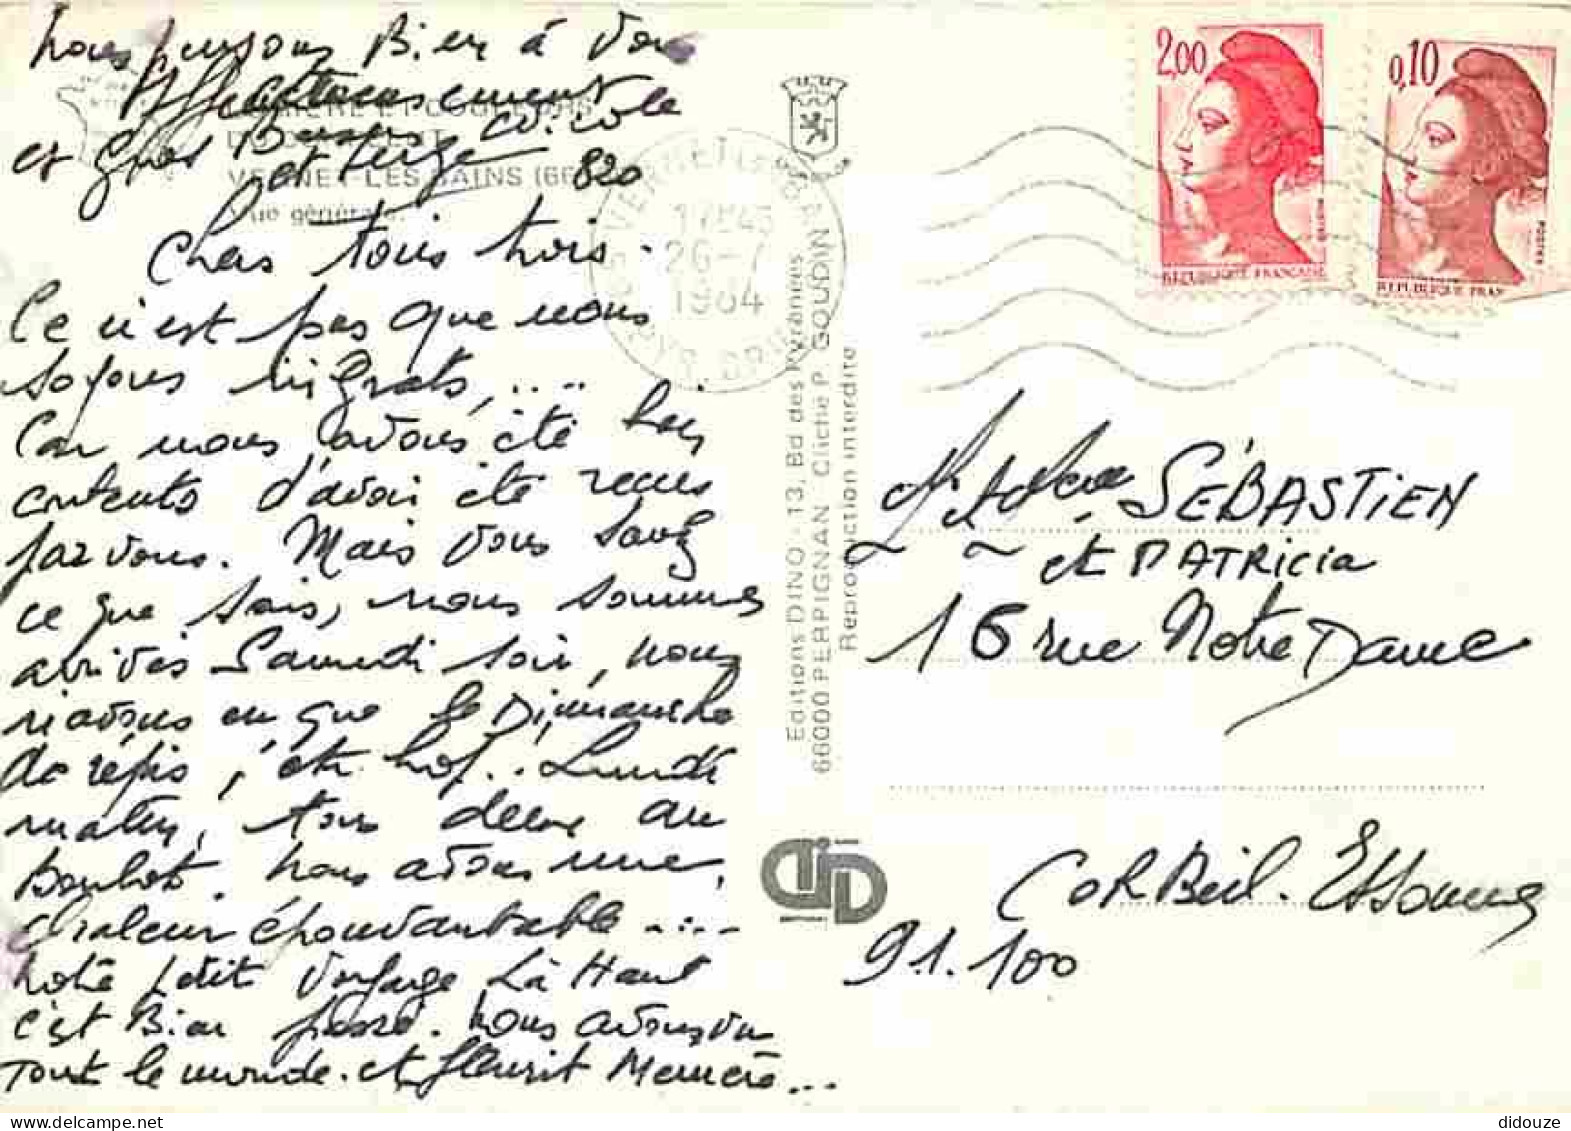 nous pensons Bien à Vous
Affectueusement
et gros Baisers
LUMIERE ET COULEURS
VERNET-LES-BAINS (66
820
Vue générale.
Chers tous trois.
Ce n'est pas que nous
soyons ingrats, ....
Car nous avons été
contents d'avoir été reçus
par vous. Mais vous savez
ce que sais, nous sommes
arrivés Samedi soir, nous
n'avons eu que le Dimanche
de répis,
Lundi
matin, tous deux au
Boulot. nous avons une
chaleur épouvantable ....
notre petit voyage Là Haut
c'est Bien passé. nous avons vu
Tout le monde. et fleurit Mémère ...
VERNET LES BAINS
17H45
26-7
1984
PYR. OR.
Editions DINO - 13, Bd des Pyrénées
66000 PERPIGNAN - Cliché P. GOUDIN
Reproduction interdite
2,00
POSTES
REPUBLIQUE FRANCAISE
0,10
POSTES
REPUBLIQUE FRAN
SÉBASTIEN
et PATRICIA
16 rue Notre Dame
CORBEIL. Essonnes
91.100
didouze